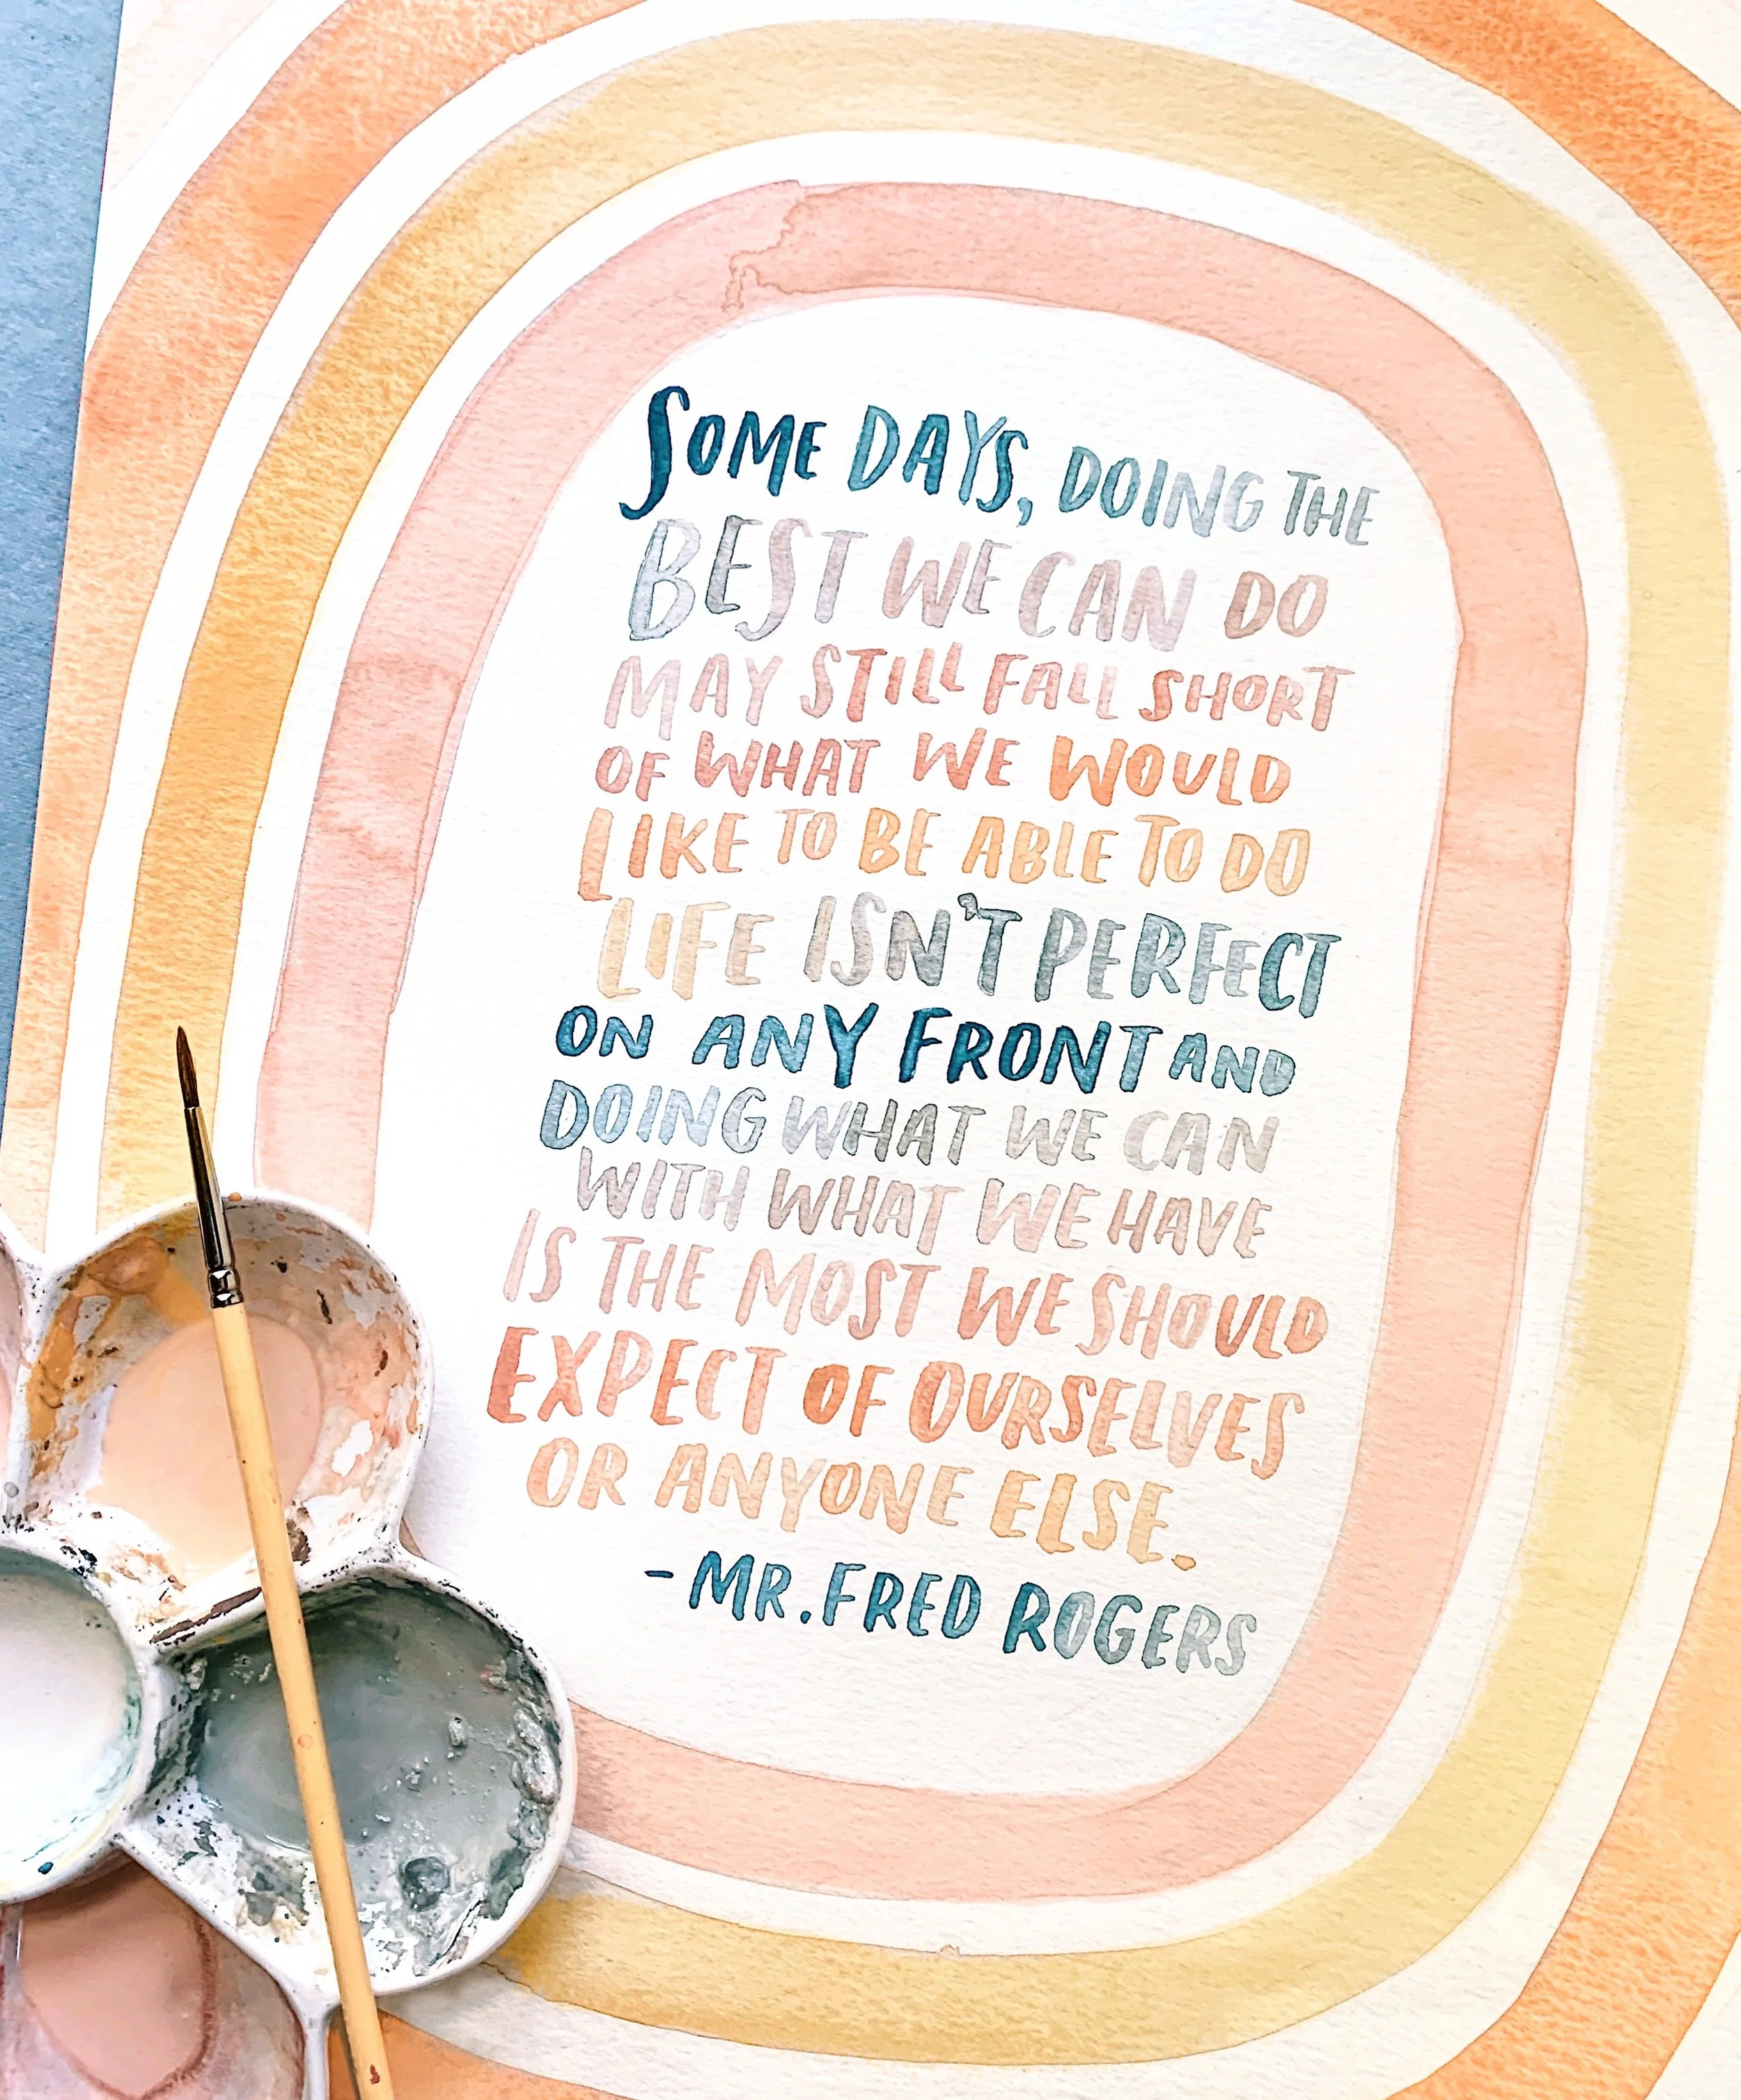 SOME DAYS, DOING THE
BEST WE CAN DO
MAY STILL FALL SHORT
OF WHAT WE WOULD
LIKE TO BE ABLE TO DO
LIFE ISN'T PERFECT
ON ANY FRONT AND
DOING WHAT WE CAN
WITH WHAT WE HAVE
IS THE MOST WE SHOULD
EXPECT OF OURSELVES
OR ANYONE ELSE.
- MR. FRED ROGERS